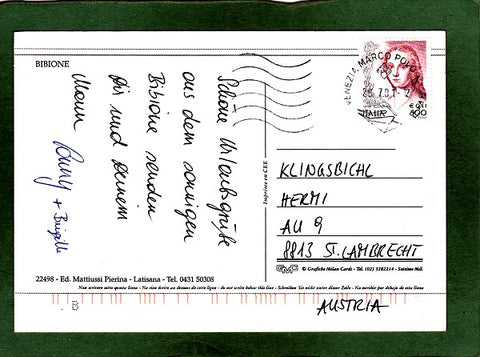 BIBIONE
Schöne Urlaubsgrüße
aus dem sonnigen
Bibione senden
Dir und Deinem
Mann
+ Brigitte
VENEZIA MARCO POLO
ITALIA
€ 0,41
800
Imprimé en CEE
KLINGSBICHL
HERMI
AU 9
8813 ST. LAMBRECHT
AUSTRIA
GMC © Grafiche Milan Cards - Tel. (02) 5282214 - Settimo Mil.
22498 - Ed. Mattiussi Pierina - Latisana - Tel. 0431 50308
Non scrivere sotto questa linea - Ne rien écrire au dessous de cette ligne - do not write below this line - Schreiben Sie nicht unter dieser Zeile - No escribir por debajo de esta linea